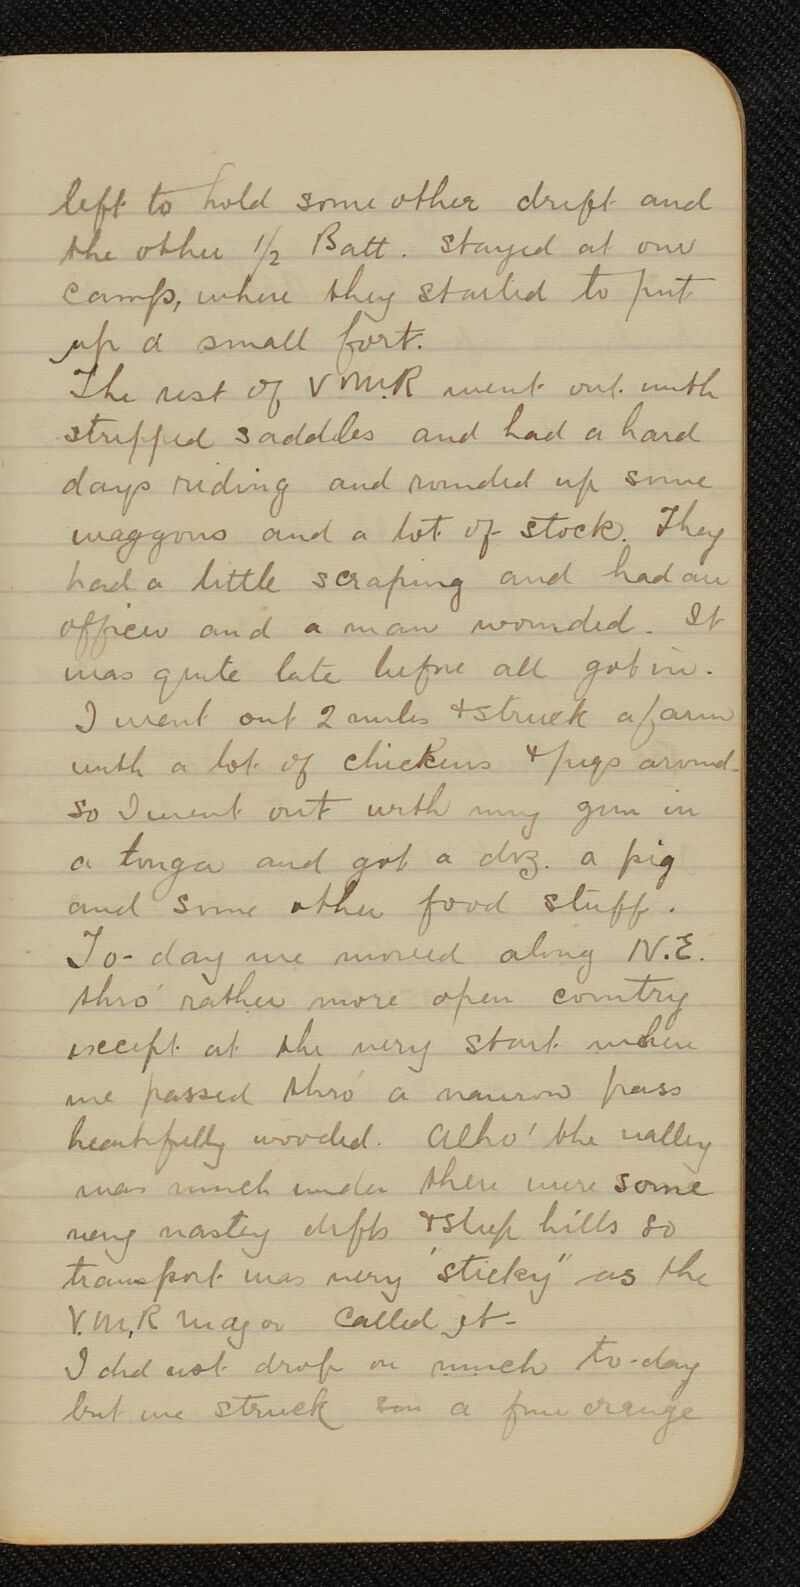 left to hold some other drift and
the other 1/2 Batt. stayed at our
camp, where they started to put
up a small fort.
The rest of V.M.R went out with
stripped saddles and had a hard
days riding and rounded up some
waggons and a lot of stock. They
had a little scraping and had an
officer and a man wounded. It
was quite late before all got in.
I went out 2 miles & struck a farm
with a lot of chickens & pigs around
so I went out with my gun in
a tonga and got a doz. a pig
and some other food stuff.
To-day we moved along N.E.
thro' rather more open country
except at the very start where
we passed thro' a narrow pass
beautifully wooded. Altho' the valley
was much wider there were some
very nasty drifts & steep hills so
transport was very "sticky" as the
V.M.R Major called it-
I did not drop on much to-day
but we struck a fine orange